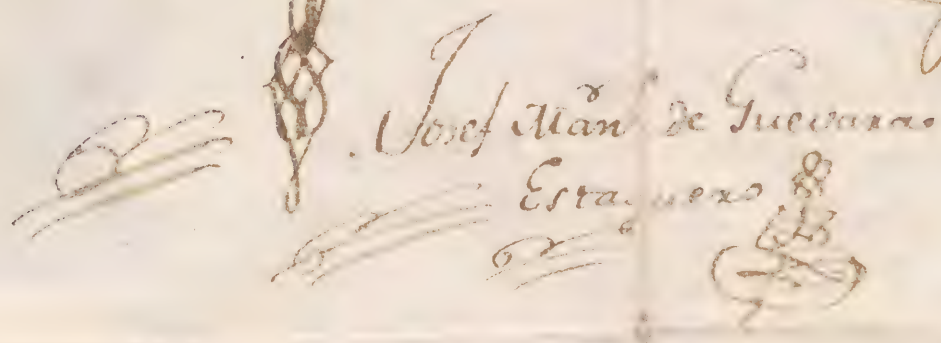 Josef Man.l de Guevara.
Estaquero